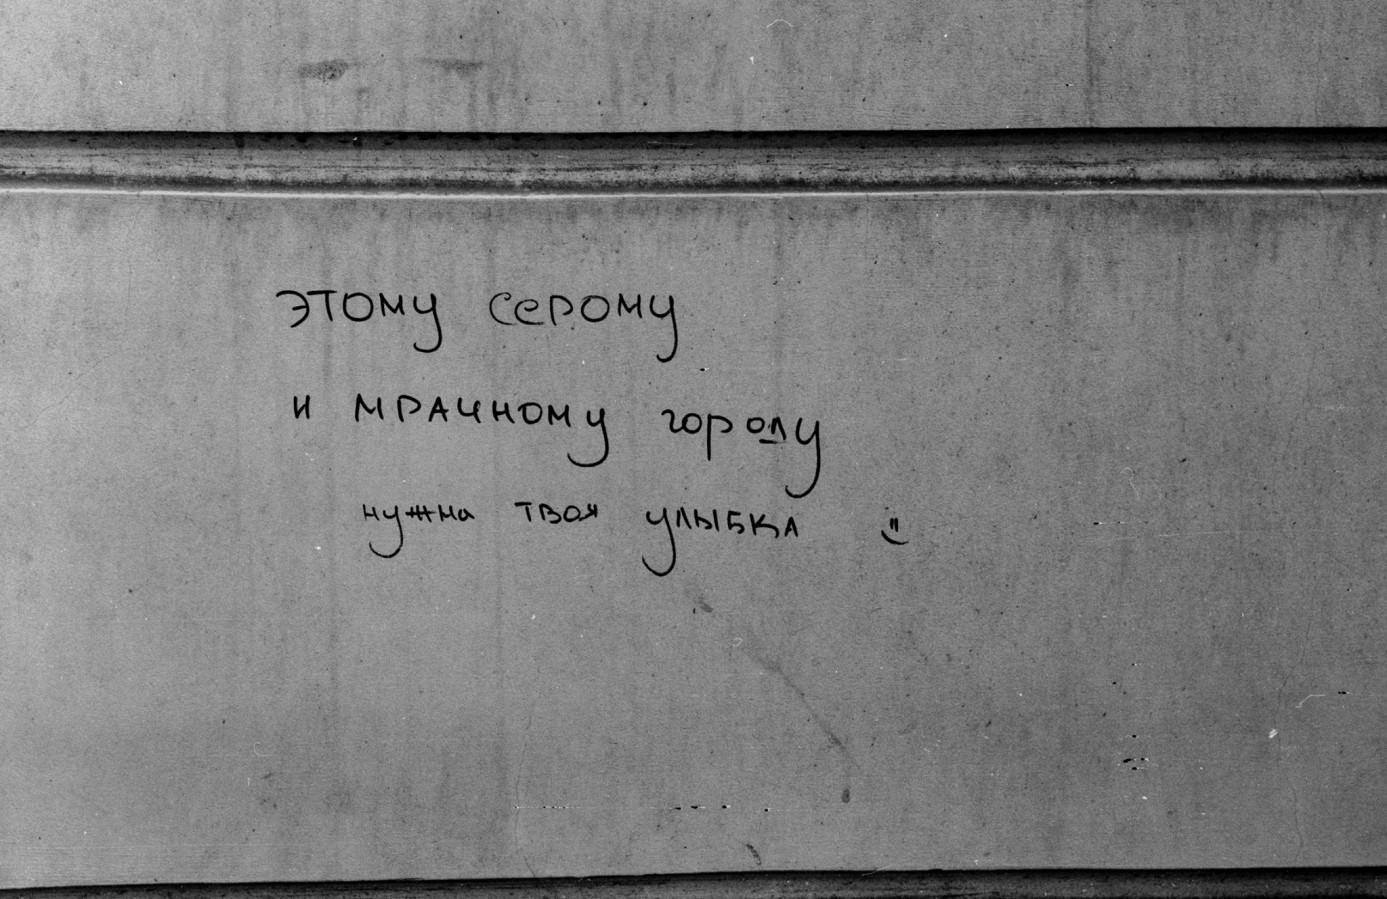 этому серому
и мрачному городу
нужна твоя улыбка